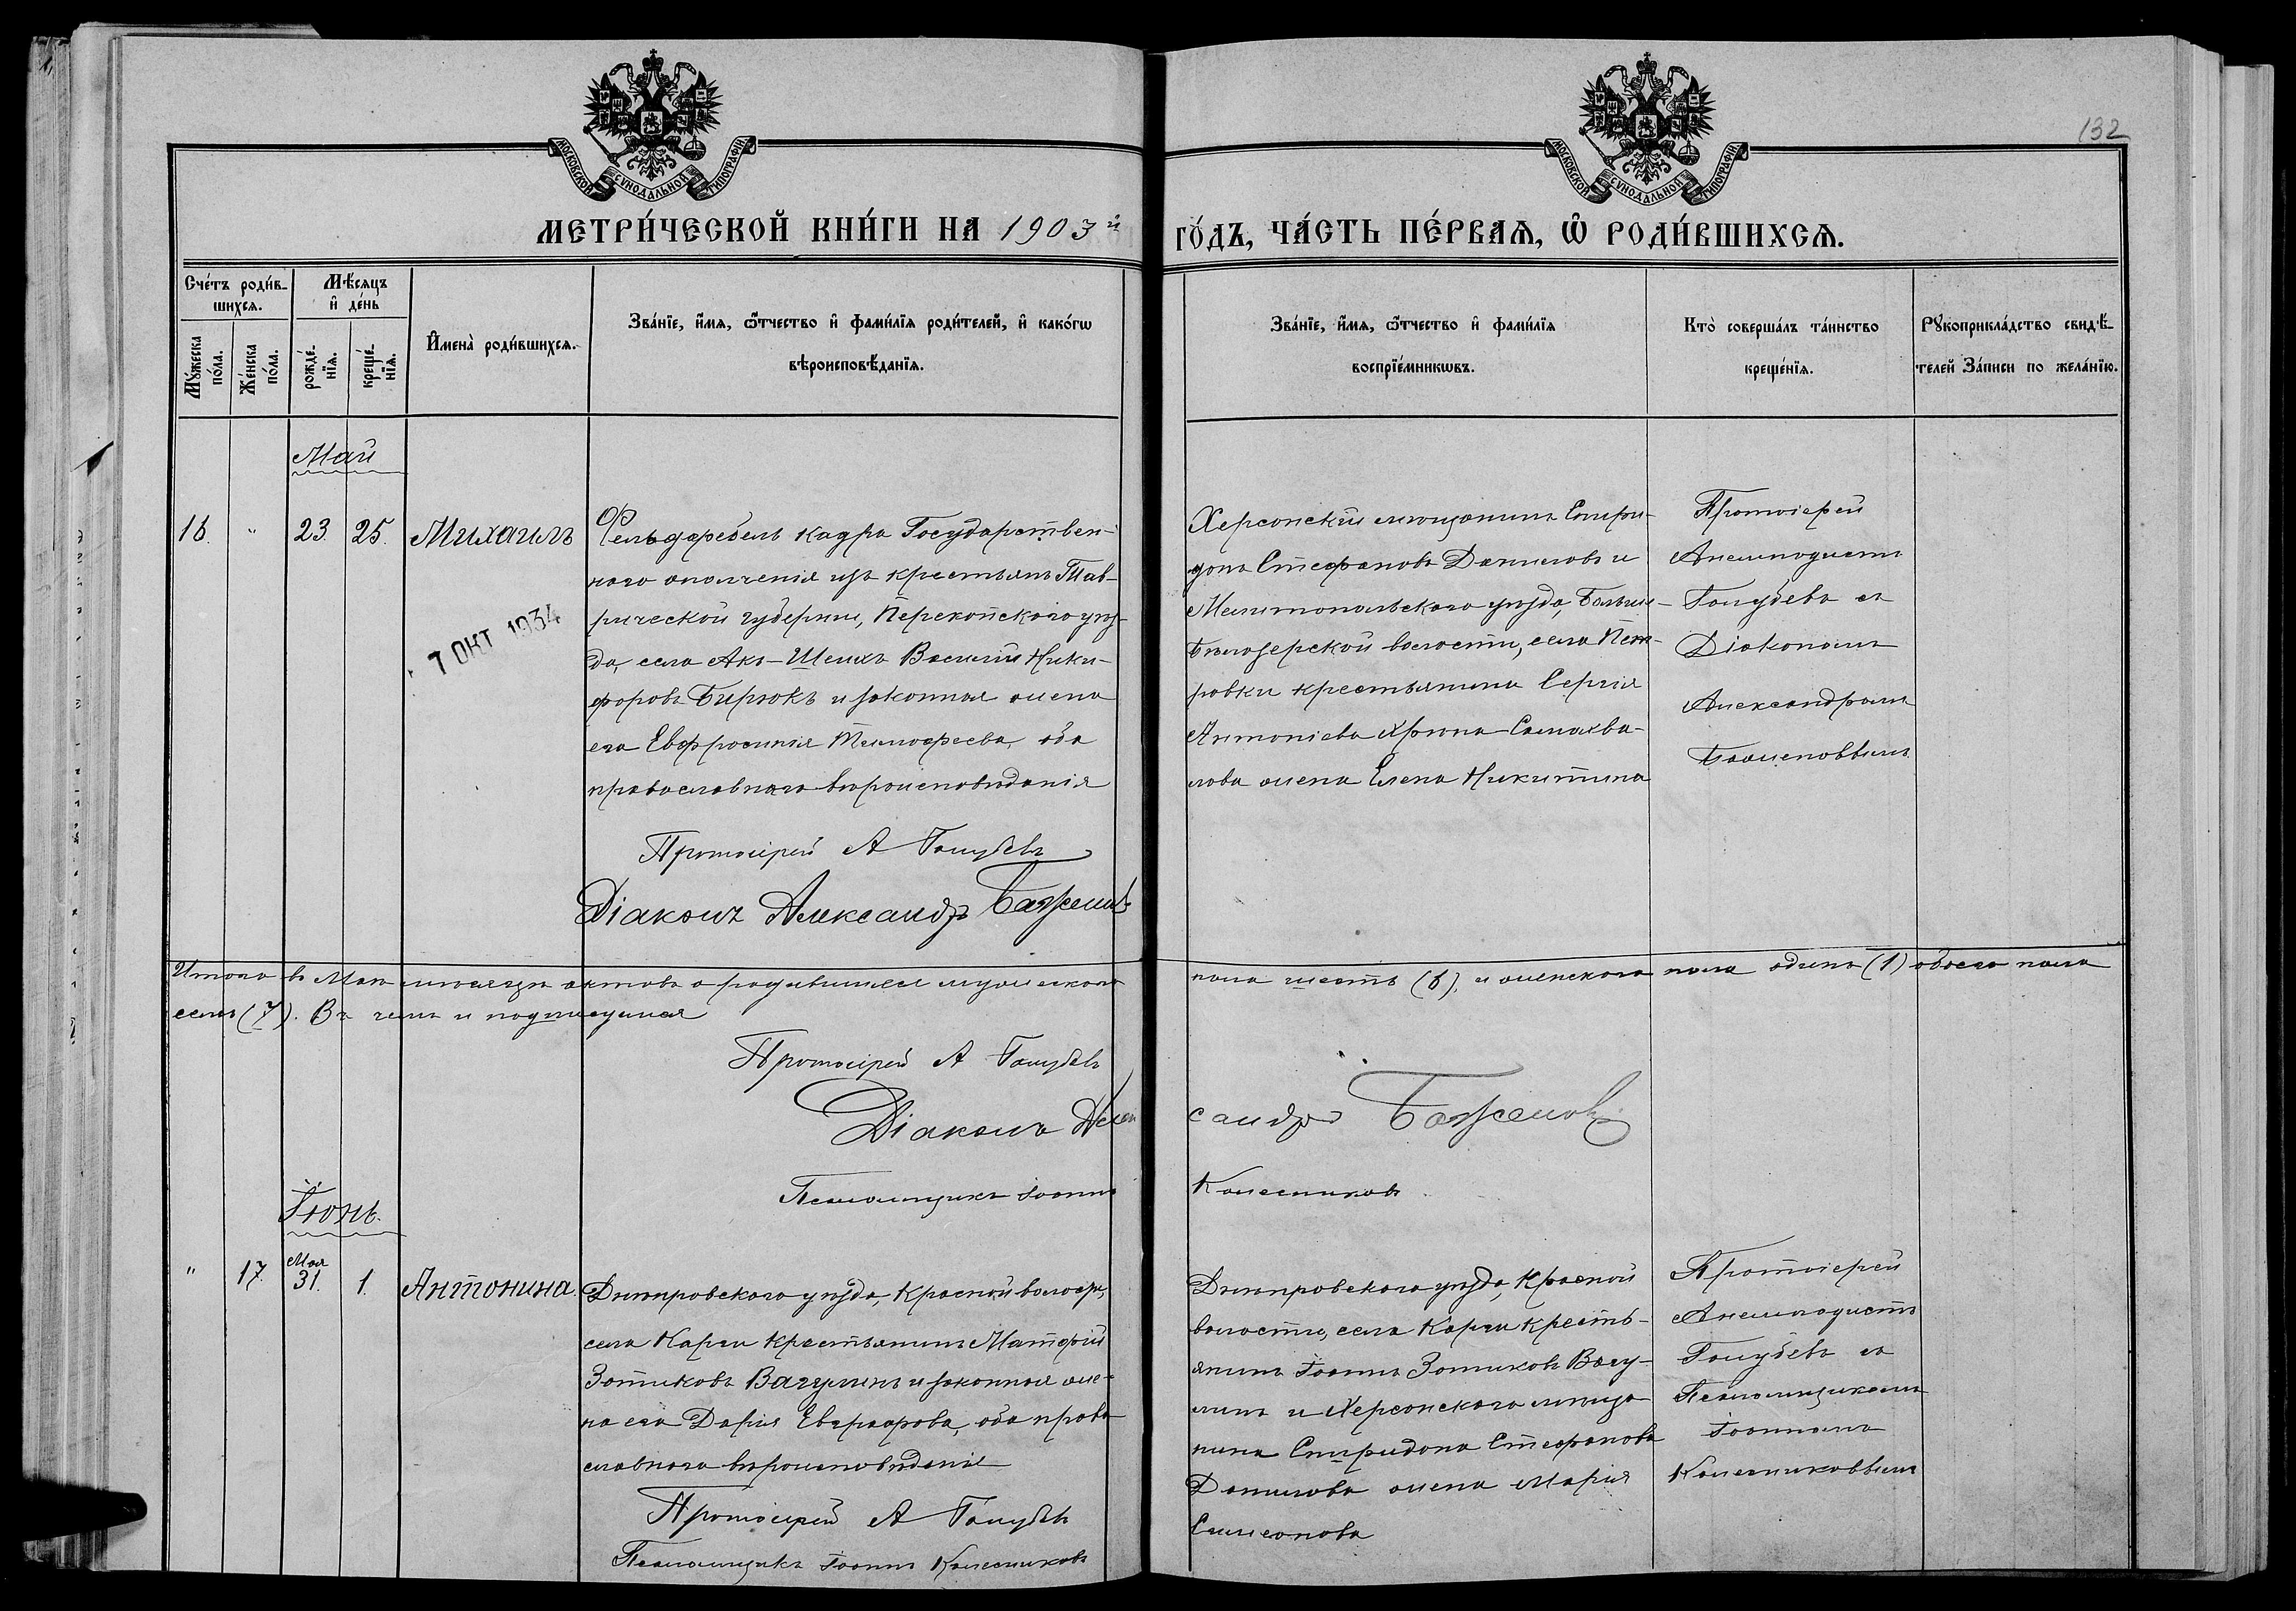 132
МОСКОВСКОЙ СѴНОДАЛЬНОЙ ТИПОГРАФІИ
МОСКОВСКОЙ СѴНОДАЛЬНОЙ ТИПОГРАФІИ
МЕТРИ́ЧЕСКОЙ КНИ́ГИ НА 1903й
ГО́ДЪ, ЧА́СТЬ ПЕ́РВАѦ, Ѡ РОДИ́ВШИХСѦ.
Сче́тъ роди́в-
шихсѧ.
Мꙋ́жеска
по́ла.
Же́нска
по́ла.
Мѣ́сѧцъ
и҆ де́нь
рожде́-
нїѧ.
креще́-
нїѧ.
И҆мена̀ роди́вшихсѧ.
Зва́нїе, и҆́мѧ, ѻ҆́тчество и҆ фами́лїѧ роди́телей, и҆ како́гѡ
вѣроисповѣ́данїѧ.
Зва́нїе, и҆́мѧ, ѻ҆́тчество и҆ фами́лїѧ
воспрїе́мникѡвъ.
Кто̀ соверша́лъ та́инство
креще́нїѧ.
Рꙋкоприкла́дство свидѣ́-
телей за́писи по жела́нїю.
Май
16. " 23. 25. Михаилъ
7 ОКТ 1934
Фельдфебель кадра Государствен-
наго ополченія изъ крестьянъ Тав-
рической губерніи, Перекопскаго уѣз-
да, села Акъ-Шеихъ Василій Ники-
форовъ Бирюкъ и законная жена
его Евфросинія Тимофеева, оба
православнаго вѣроисповѣданія
Протоіерей А Голубевъ
Діаконъ Александръ Баженовъ
Херсонскій мѣщанинъ Спири-
донъ Стефановъ Даниловъ и
Мелитопольскаго уѣзда, Больше-
Бѣлозерской волости, села Пет-
ровки крестьянина Сергія
Антоніева Хрюпа-Самохва-
лова жена Елена Никитина
Протоіерей
Анемподистъ
Голубевъ съ
Діакономъ
Александромъ
Баженовымъ
Итого въ Маѣ мѣсяцѣ актовъ о родившихся мужескаго
пола шесть (6), и женскаго пола одинъ (1) обоего пола
семь (7). Въ чемъ и подписуемся
Протоіерей А Голубевъ
Діаконъ Алек
сандръ Баженовъ
Псаломщикъ Іоаннъ
Колесниковъ
Іюнь.
" 17. Мая 31. 1. Антонина.
Днѣпровскаго уѣзда, Красной волости,
села Карги крестьянинъ Матфей
Зотиковъ Вагулинъ и законная же-
на его Дарія Евграфова, оба право
славнаго вѣроисповѣданія
Протоіерей А Голубевъ
Псаломщикъ Іоаннъ Колесниковъ
Днѣпровскаго уѣзда, Красной
волости, села Карги кресть-
янинъ Іоаннъ Зотиковъ Вагу-
линъ и Херсонскаго мѣща
нина Спиридона Стефанова
Данилова жена Марія
Симеонова
Протоіерей
Анемподистъ
Голубевъ съ
Псаломщикомъ
Іоанномъ
Колесниковымъ